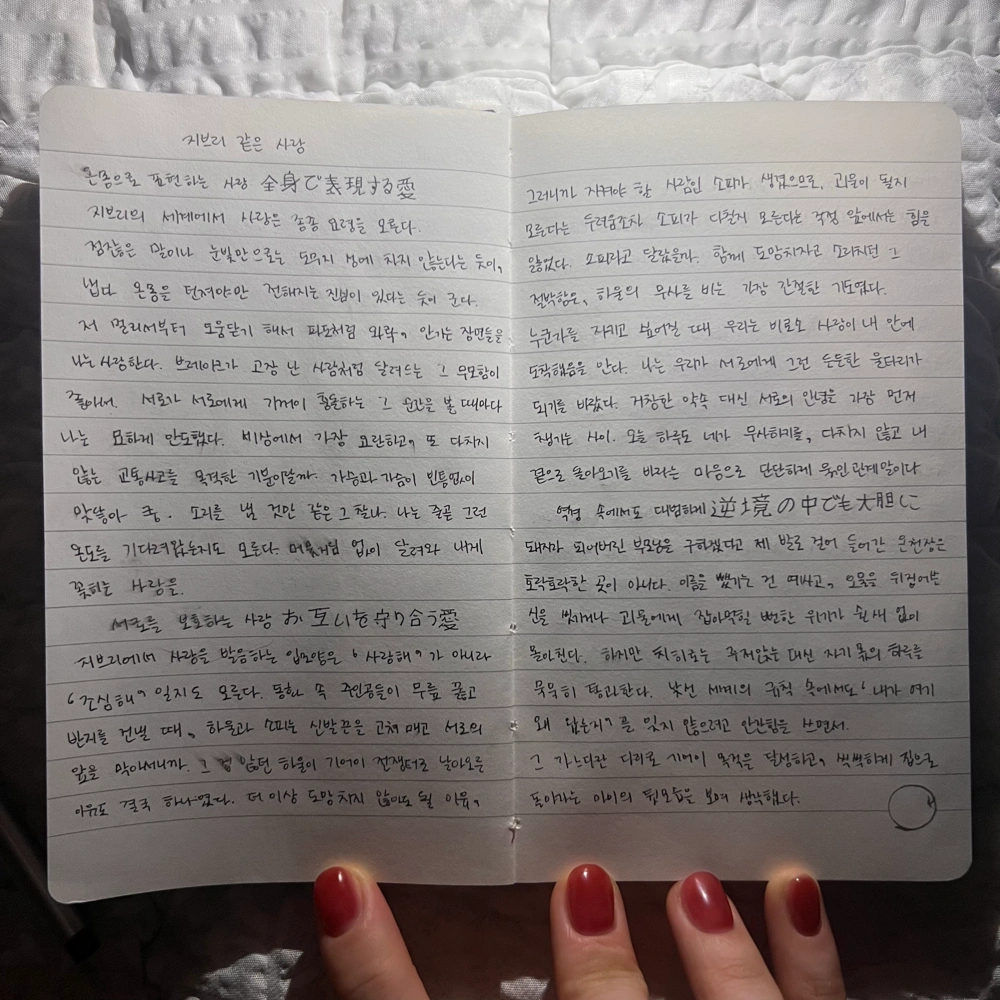 지브리 같은 사랑
온몸으로 표현하는 사랑 全身で表現する愛
지브리의 세계에서 사랑은 종종 요령을 모른다.
점잖은 말이나 눈빛만으로는 도무지 성에 차지 않는다는 듯이,
냅다 온몸을 던져야만 전해지는 진심이 있다는 듯이 군다.
저 멀리서부터 도움닫기 해서 파도처럼 와락, 안기는 장면들을
나는 사랑한다. 브레이크가 고장 난 사람처럼 달려드는 그 무모함이
좋아서. 서로가 서로에게 기꺼이 충돌하는 그 순간을 볼 때마다
나는 묘하게 안도했다. 비상에서 가장 요란하고, 또 다치지
않는 교통사고를 목격한 기분이랄까. 가슴과 가슴이 빈틈없이
맞닿아 쿵. 소리를 낼 것만 같은 그 찰나. 나는 줄곧 그런
온도를 기다려왔는지도 모른다. 머뭇거림 없이 달려와 내게
꽂히는 사랑을.
서로를 보호하는 사랑 お互いを守り合う愛
지브리에서 사랑을 발음하는 입모양은 '사랑해'가 아니라
'조심해' 일지도 모른다. 동화 속 주인공들이 무릎 꿇고
반지를 건넬 때, 하울과 소피는 신발끈을 고쳐 매고 서로의
앞을 막아서니까. 그 겁 많던 하울이 기어이 전쟁터로 날아오른
이유도 결국 하나였다. 더 이상 도망치지 않아도 될 이유,
그러니까 지켜야 할 사람인 소피가 생겼으므로, 괴물이 될지
모른다는 두려움조차 소피가 다칠지 모른다는 걱정 앞에서는 힘을
잃었다. 소피라고 달랐을까. 함께 도망치자고 소리치던 그
절박함은, 하울의 무사를 비는 가장 간절한 기도였다.
누군가를 지키고 싶어질 때 우리는 비로소 사랑이 내 안에
도착했음을 안다. 나는 우리가 서로에게 그런 든든한 울타리가
되기를 바랐다. 거창한 약속 대신 서로의 안녕을 가장 먼저
챙기는 사이. 오늘 하루도 네가 무사하기를, 다치지 않고 내
곁으로 돌아오기를 바라는 마음으로 단단하게 묶인 관계 말이다
역경 속에서도 대범하게 逆境の中でも大胆に
돼지가 되어버린 부모님을 구하겠다고 제 발로 걸어 들어간 온천장은
호락호락한 곳이 아니다. 이름을 뺏기는 건 예사고, 오물을 뒤집어쓴
신을 씻기거나 괴물에게 잡아먹힐 뻔한 위기가 쉴 새 없이
몰아친다. 하지만 치히로는 주저앉는 대신 자기 몫의 하루를
묵묵히 통과한다. 낯선 세계의 규칙 속에서도 '내가 여기
왜 왔는지'를 잊지 않으려고 안간힘을 쓰면서.
그 가느다란 다리로 기어이 목적을 달성하고, 씩씩하게 집으로
돌아가는 아이의 뒷모습을 보며 생각했다.